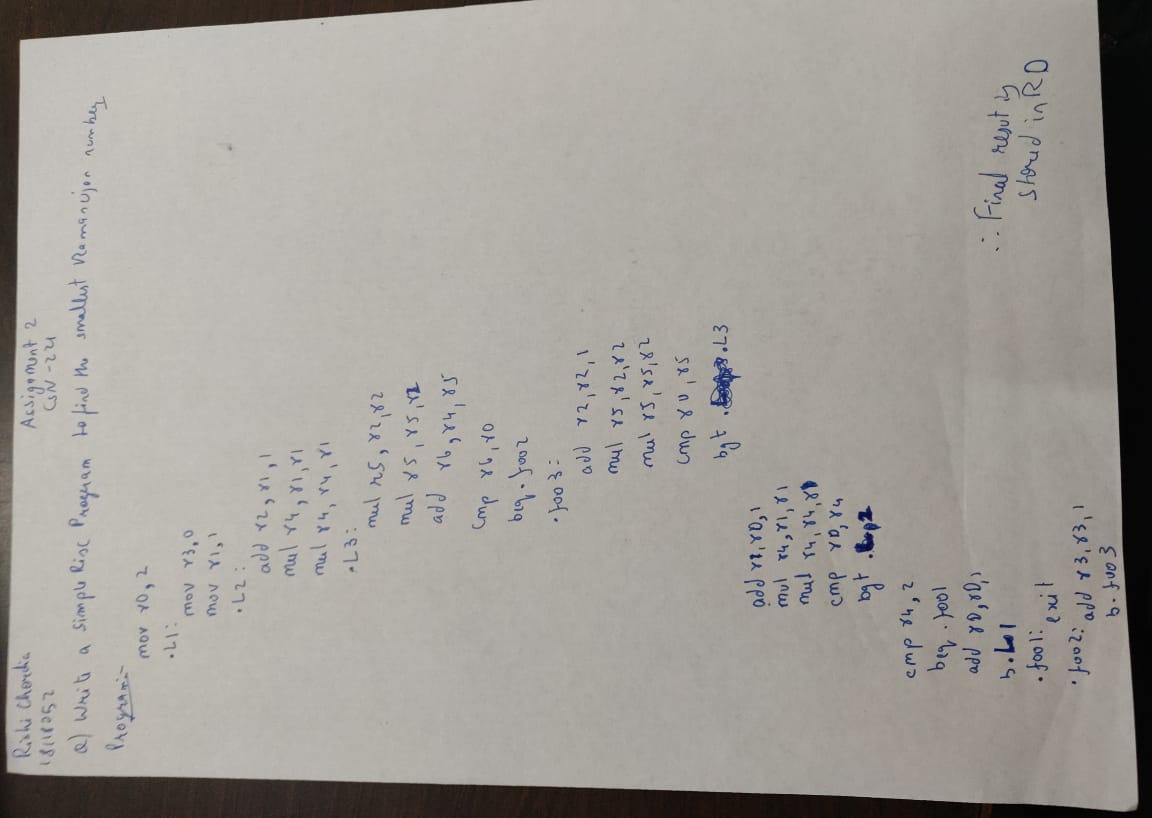 Rishi Chordia
18118052
Assignment 2
CSN-221
Q) Write a Simple Risc Program to find the smallest Ramanujan number
Program:-
mov r0, 2
.L1:
mov r3, 0
mov r1, 1
.L2:
add r2, r1, 1
mul r4, r1, r1
mul r4, r4, r1
.L3:
mul r5, r2, r2
mul r5, r5, r2
add r6, r4, r5
cmp r6, r0
beq .foo2
.foo3:
add r2, r2, 1
mul r5, r2, r2
mul r5, r5, r2
cmp r0, r5
bgt .L3
add r1, r0, 1
mul r4, r1, r1
mul r4, r4, r1
cmp r0, r4
bgt
cmp r4, 2
beq .foo1
add r0, r0, 1
b .L1
.foo1:
exit
.foo2: add r3, r3, 1
b .foo3
∴ Final result is
stored in R0